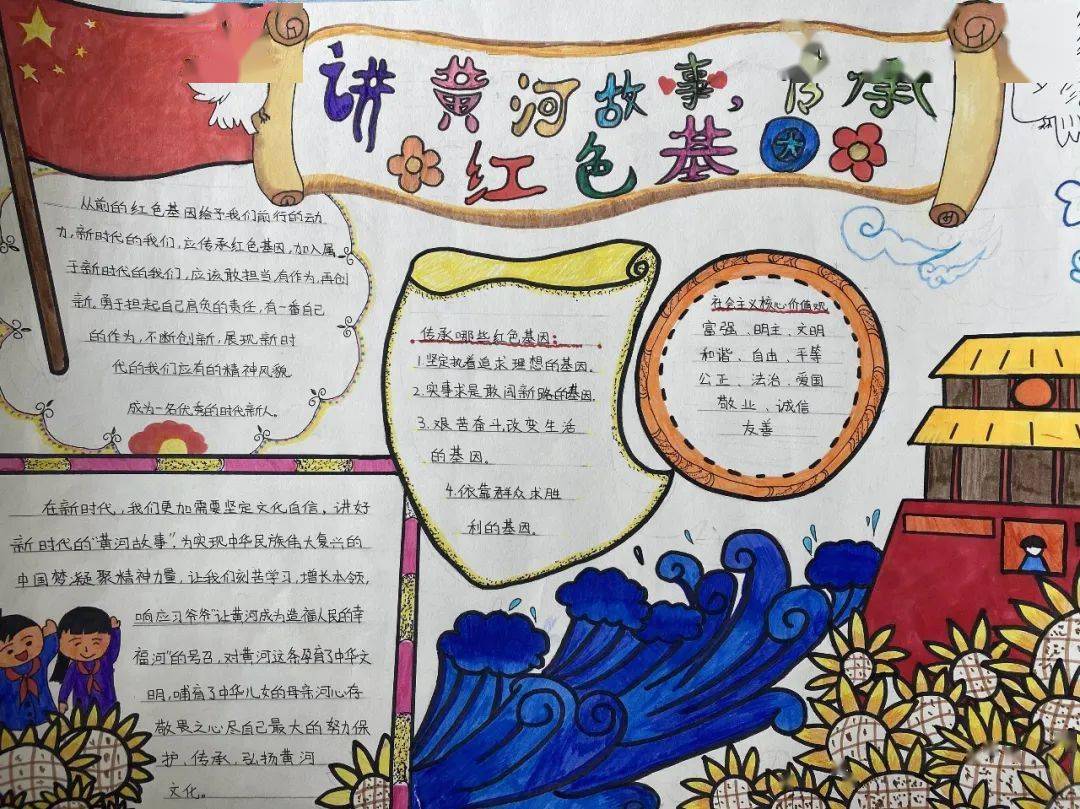 讲黄河故事,传承
红色基因
从前的红色基因给予我们前行的动
力,新时代的我们,应传承红色基因,加入属
于新时代的我们,应该敢担当,有作为,再创
新。勇于担起自己肩负的责任,有一番自己
的作为,不断创新,展现新时
代的我们应有的精神风貌
成为一名优秀的时代新人。
传承哪些红色基因:
1.坚定执着追求理想的基因。
2.实事求是敢闯新路的基因.
3.艰苦奋斗,改变生活
的基因。
4.依靠群众求胜
利的基因。
社会主义核心价值观
富强、明主、文明
和谐、自由、平等
公正、法治、爱国
敬业、诚信
友善
在新时代,我们更加需要坚定文化自信,讲好
新时代的"黄河故事",为实现中华民族伟大复兴的
中国梦凝聚精神力量,让我们刻苦学习,增长本领,
响应习爷爷"让黄河成为造福人民的幸
福河"的号召,对黄河这条孕育了中华文
明,哺育了中华儿女的母亲河心存
敬畏之心尽自己最大的努力保
护、传承,弘扬黄河
文化。